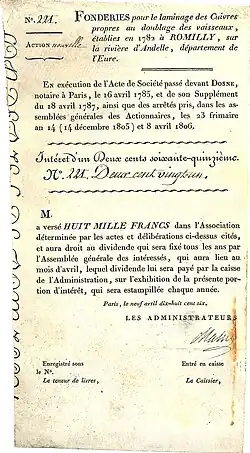 N.° 221.
FONDERIES pour le laminage des Cuivres
propres au doublage des vaisseaux,
établies en 1782 à ROMILLY, sur
la rivière d'Andelle, département de
l'Eure.
ACTION nouvelle
En exécution de l'Acte de Société passé devant DOSNE,
notaire à Paris, le 16 avril 1785, et de son Supplément
du 18 avril 1787, ainsi que des arrêtés pris, dans les as-
semblées générales des Actionnaires, les 23 frimaire
an 14 (14 décembre 1805) et 8 avril 1806.
Intérêt d'un Deux cents soixante-quinzième.
N.° 221. Deux cent vingt un.
M.
a versé HUIT MILLE FRANCS dans l'Association
déterminée par les actes et délibérations ci-dessus cités,
et aura droit au dividende qui sera fixé tous les ans par
l'Assemblée générale des intéressés, qui aura lieu au
mois d'avril, lequel dividende lui sera payé par la caisse
de l'Administration, sur l'exhibition de la présente por-
tion d'intérêt, qui sera estampillée chaque année.
Paris, le neuf avril dix-huit cent six.
LES ADMINISTRATEURS
Enregistré sous
le N.°
Le teneur de livres,
Entré en caisse
Le Caissier,